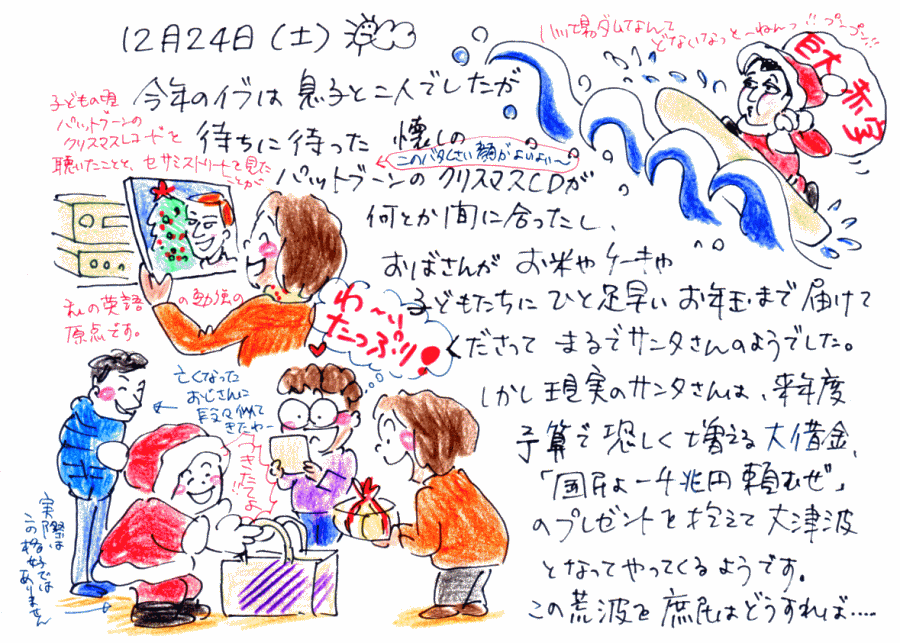 12月24日（土）
今年のイブは 息子と二人でしたが
待ちに待った 懐しの
パットブーンの クリスマスCDが
何とか間に合ったし、
おばさんが お米や ケーキや
子どもたちに ひと足早い お年玉まで 届けて
くださって まるでサンタさんのようでした。
しかし現実のサンタさんは、来年度
予算で 恐しく 増える 大借金、
「国民よ一千兆円 頼むぜ」
のプレゼントを抱えて 大津波
となってやってくるようです。
この荒波を 庶民はどうすれば‥‥
子どもの頃
パットブーンの
クリスマスレコードを
聴いたことと、セサミストリートを見た
ことが
私の英語の勉強の
原点です。
このバタくさい顔がよいよい〜
八ッ場ダムてなんて
どないなっとーねんっ!! プンプン!!
巨大赤字
わ〜い
たっぷり!
亡くなった
おじさんに
段々似て
きたわー
きたよ
実際は
この格好では
ありません